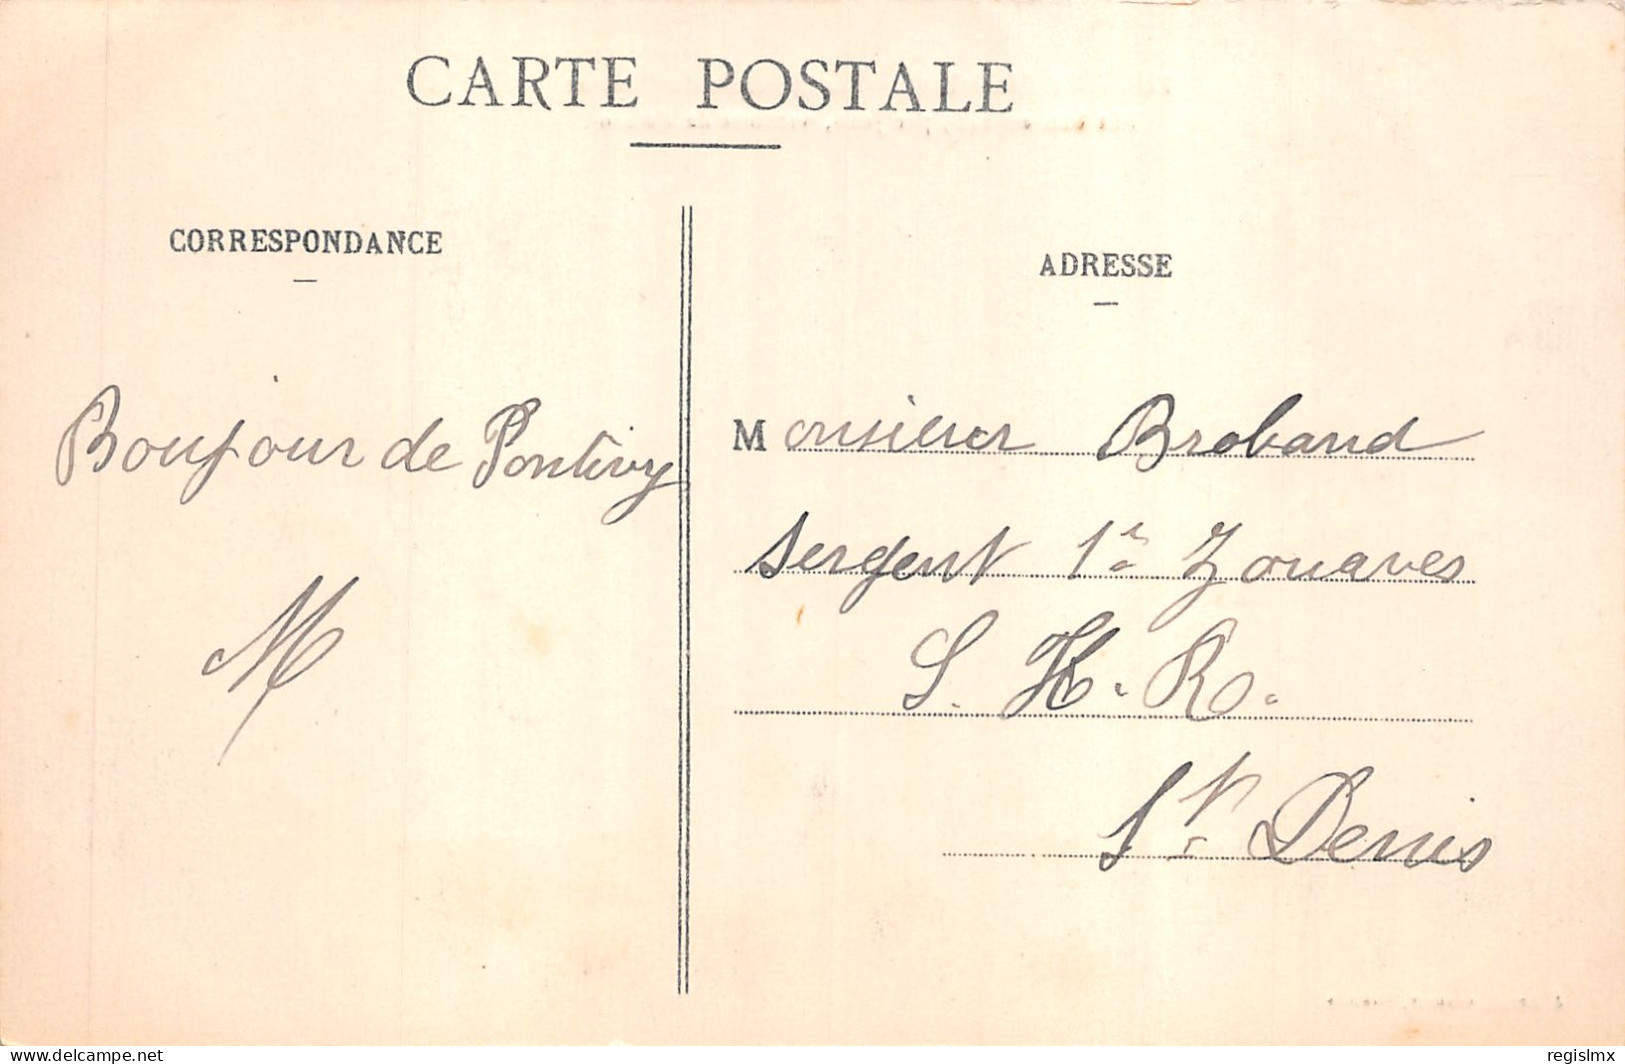 CARTE POSTALE
CORRESPONDANCE
ADRESSE
Bonjour de Pontivy
M
Monsieur Braband
Sergent 1er Zouaves
S. H. R.
St Denis
delcampe.net
regislmx